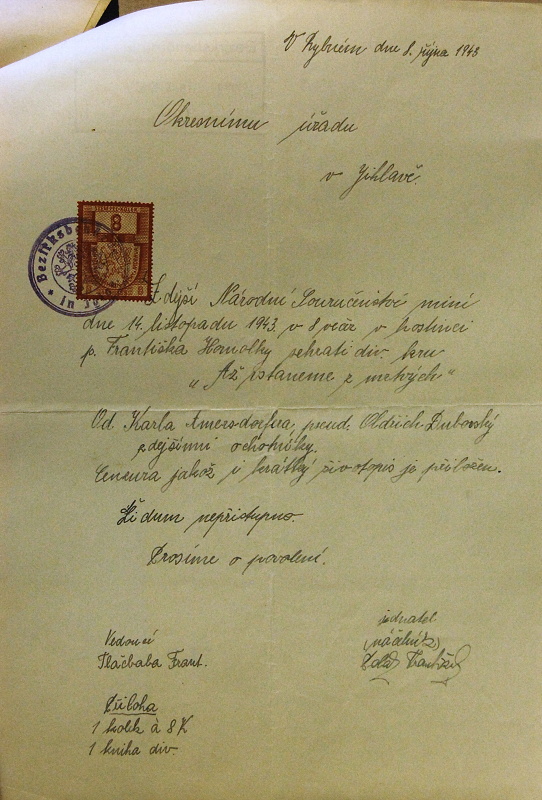 V Rybném dne 8. října 1943
Okresnímu úřadu
v Jihlavě.
8
Bezirksbe
in
8
Zdejší Národní Souručenství míní
dne 14. listopadu 1943 v 8 več v hostinci
p. Františka Homolky sehrati div. hru
„Až vstaneme z mrtvých"
Od Karla Amersdorfera, pseud. Oldřich Dubovský
zdejšími ochotníky.
Censura jakož i krátký životopis je přiložen.
Židům nepřístupno.
Prosíme o povolení.
jednatel
Vedoucí
Tlačbaba Frant.
Příloha
1 kolek à 8 K
1 kniha div.